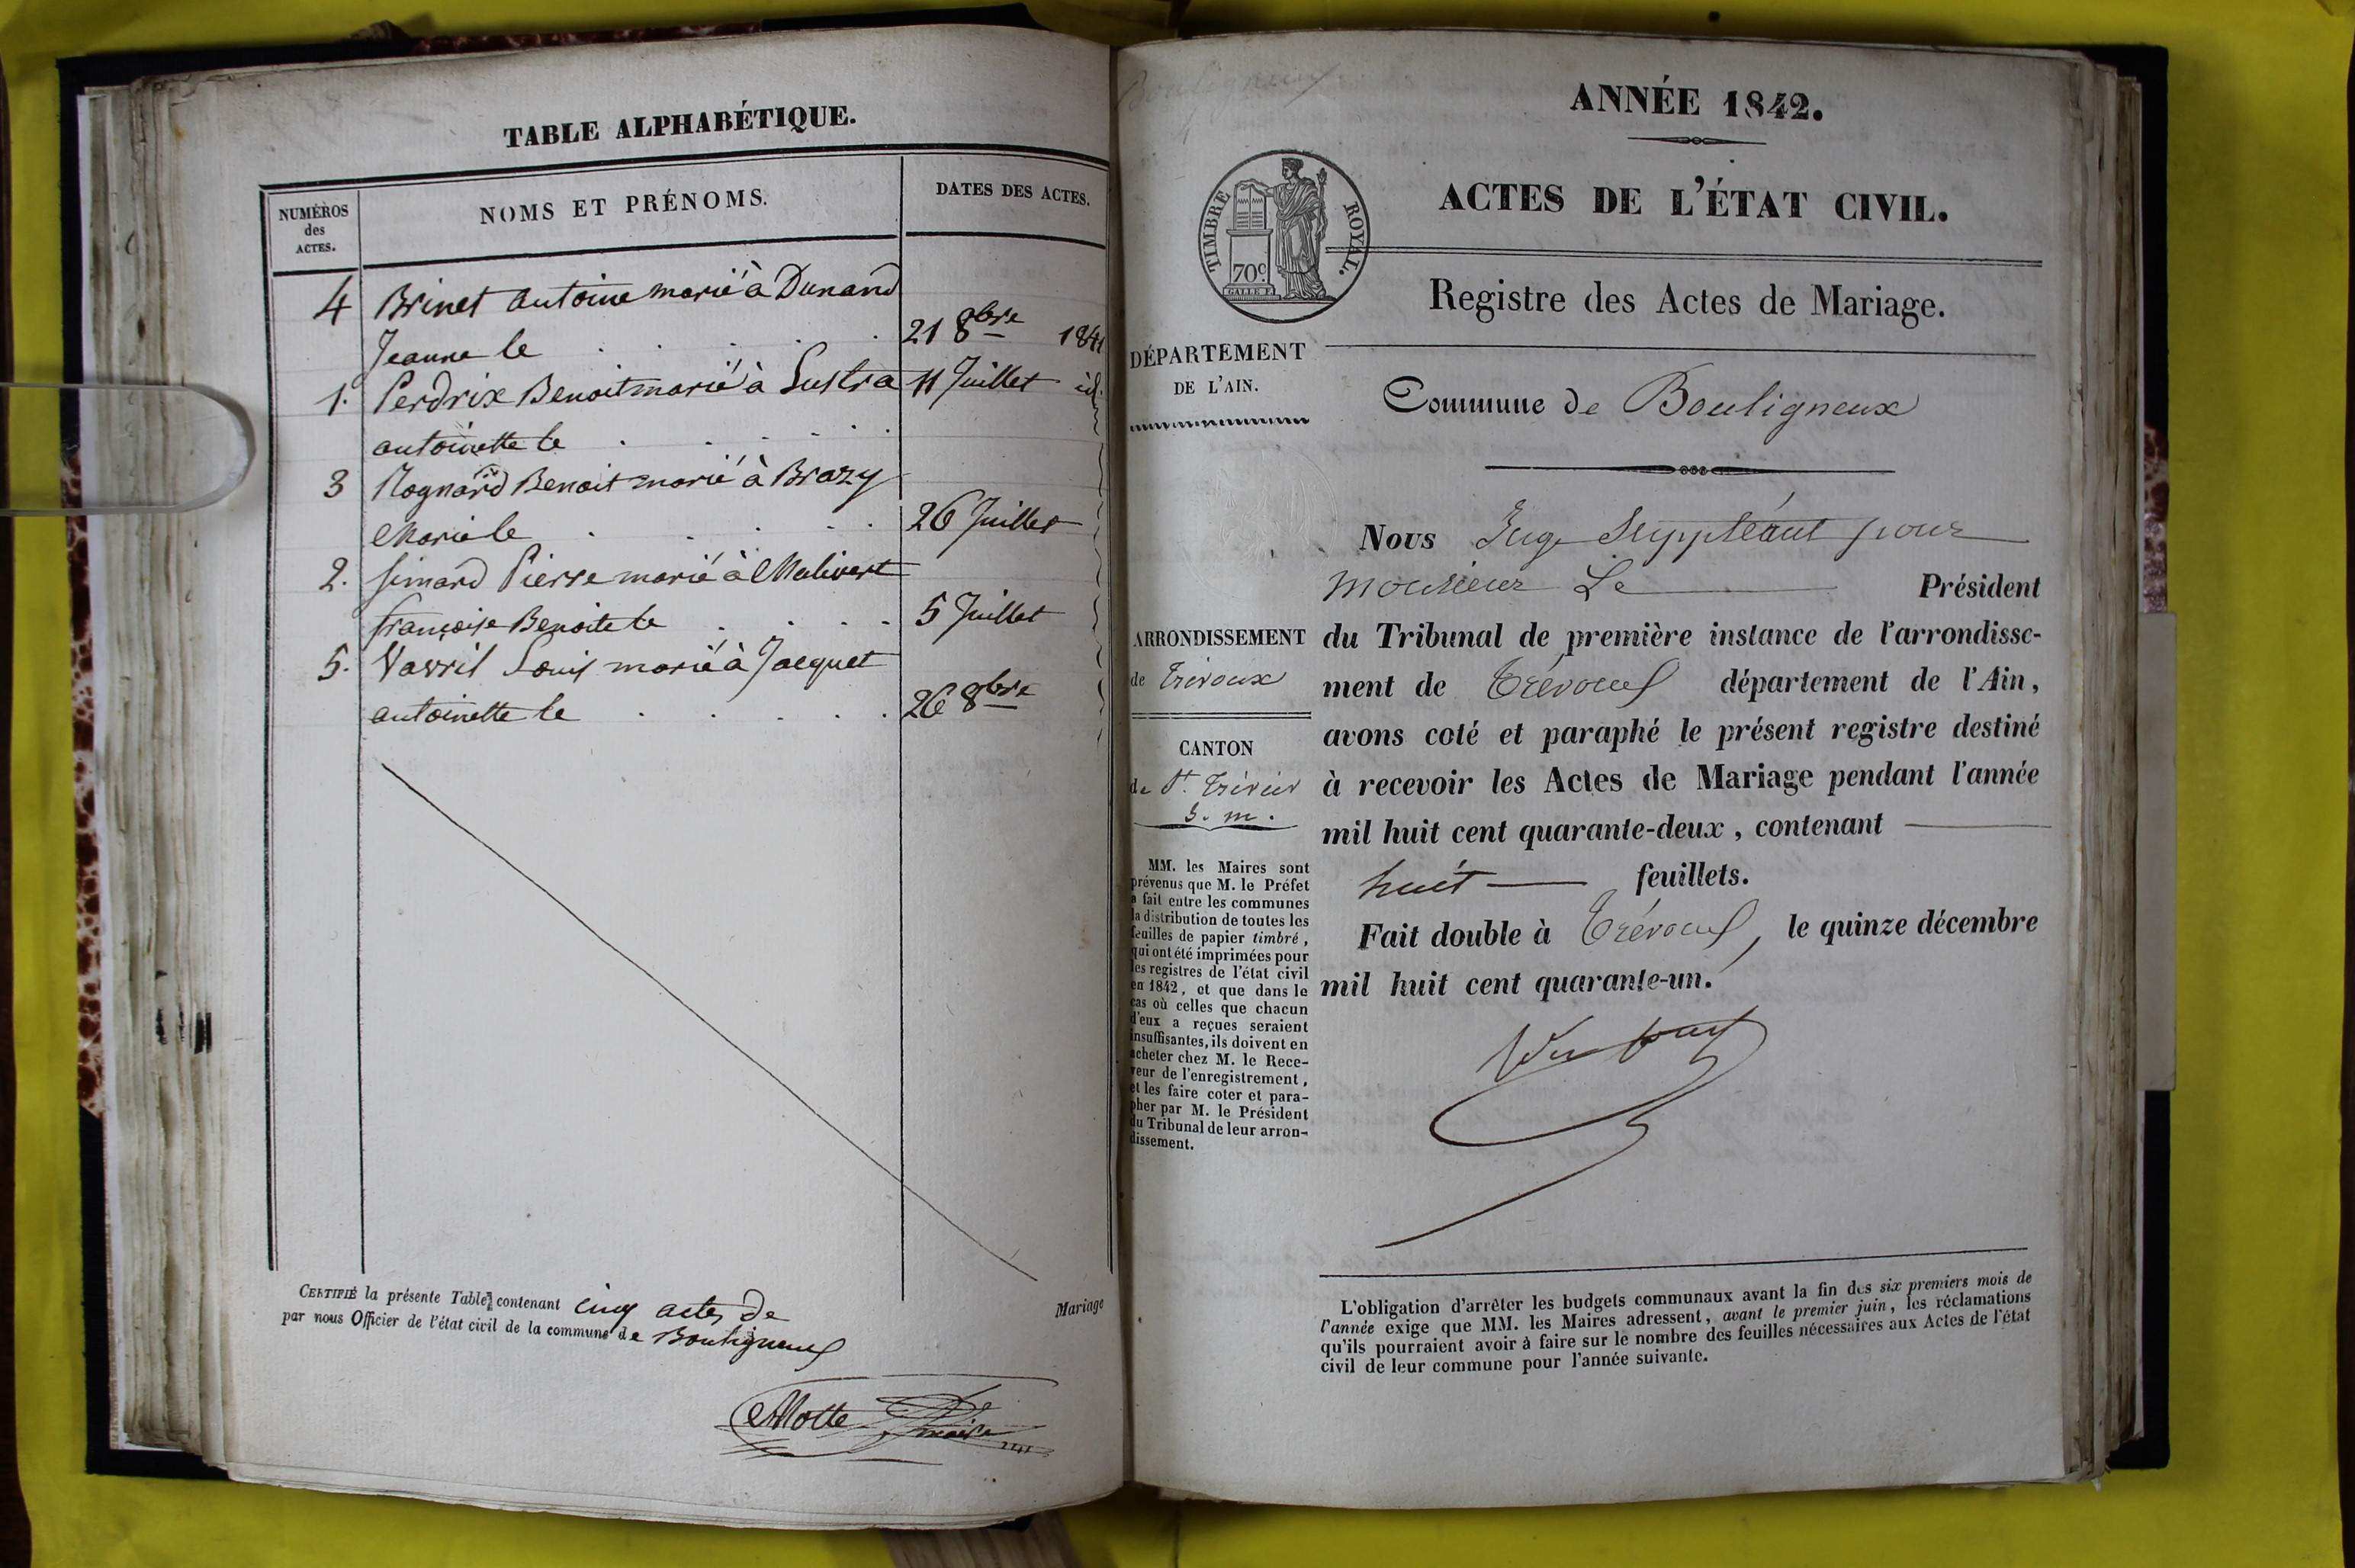 TABLE ALPHABÉTIQUE.
NUMÉROS des ACTES.
NOMS ET PRÉNOMS.
DATES DES ACTES.
4 Brinet antoine marié à Dunand
Jeanne le . . . . . 21 8bre 1841
1. Perdrix Benoit marié à Lustra 11 Juillet id.
antoinette le . . . . .
3 Rognard Benoit marié à Brazy
Marie le . . . . . 26 Juillet
2. simard Pierre marié à Malivert
françoise Benoite le . . . . 5 Juillet
5. Vavril Louis marié à Jacquet
antoinette le . . . . . 26 8bre
CERTIFIÉ la présente Table contenant cinq actes de
Mariage
par nous Officier de l'état civil de la commune de Bouligneux
Motte
maire
Bouligneux
ANNÉE 1842.
TIMBRE ROYAL.
70c
GALLE F.
ACTES DE L'ÉTAT CIVIL.
Registre des Actes de Mariage.
DÉPARTEMENT
DE L'AIN.
Commune de Bouligneux
Nous Juge Suppléant pour
monsieur Le Président
du Tribunal de première instance de l'arrondisse-
ment de Trévoux département de l'Ain,
avons coté et paraphé le présent registre destiné
à recevoir les Actes de Mariage pendant l'année
mil huit cent quarante-deux, contenant
huit feuillets.
Fait double à Trévoux, le quinze décembre
mil huit cent quarante-un.
ARRONDISSEMENT
de Trévoux
CANTON
de St. Trivier
s. m.
MM. les Maires sont
prévenus que M. le Préfet
a fait entre les communes
la distribution de toutes les
feuilles de papier timbré,
qui ont été imprimées pour
les registres de l'état civil
en 1842, et que dans le
cas où celles que chacun
d'eux a reçues seraient
insuffisantes, ils doivent en
acheter chez M. le Rece-
veur de l'enregistrement,
et les faire coter et para-
pher par M. le Président
du Tribunal de leur arron-
dissement.
L'obligation d'arrêter les budgets communaux avant la fin des six premiers mois de
l'année exige que MM. les Maires adressent, avant le premier juin, les réclamations
qu'ils pourraient avoir à faire sur le nombre des feuilles nécessaires aux Actes de l'état
civil de leur commune pour l'année suivante.